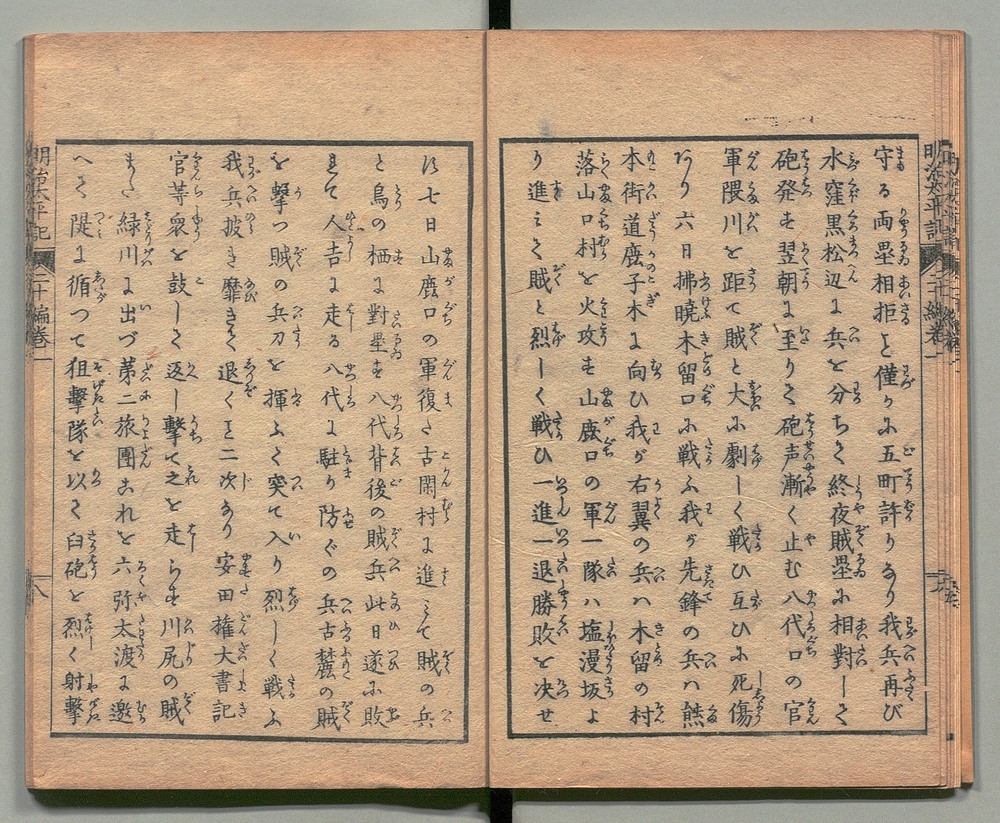 守る両塁相拒こと僅に五町許りなり我兵再び
水窪黒松辺に兵を分ちて終夜賊塁に相對して
砲発す翌朝に至りて砲声漸く止む八代口の官
軍隈川を距て賊と大に劇しく戦ひ互ひに死傷
あり六日拂暁木留口に戦ふ我が先鋒の兵ハ熊
本街道鹿子木に向ひ我が右翼の兵ハ木留の村
落山口村を火攻す山鹿口の軍一隊ハ塩漫坂よ
り進ミて賊と烈しく戦ひ一進一退勝敗を决せ
ず七日山鹿口の軍復た古閑村に進ミて賊の兵
と鳥の栖に對塁す八代背後の賊兵此日遂に敗
きて人吉に走る八代に駐り防ぐの兵古麓の賊
を撃つ賊の兵刀を揮ふて突て入り烈しく戦ふ
我兵披き靡きて退くこと二次なり安田権大書記
官等衆を鼓して返し撃て之を走らす川尻の賊
また緑川に出づ第二旅團これを六弥太渡に邀
へて隄に循つて狙撃隊を以て臼砲を烈く射撃
明治太平記
二十編巻一
十八
明治太平記
二十編巻一